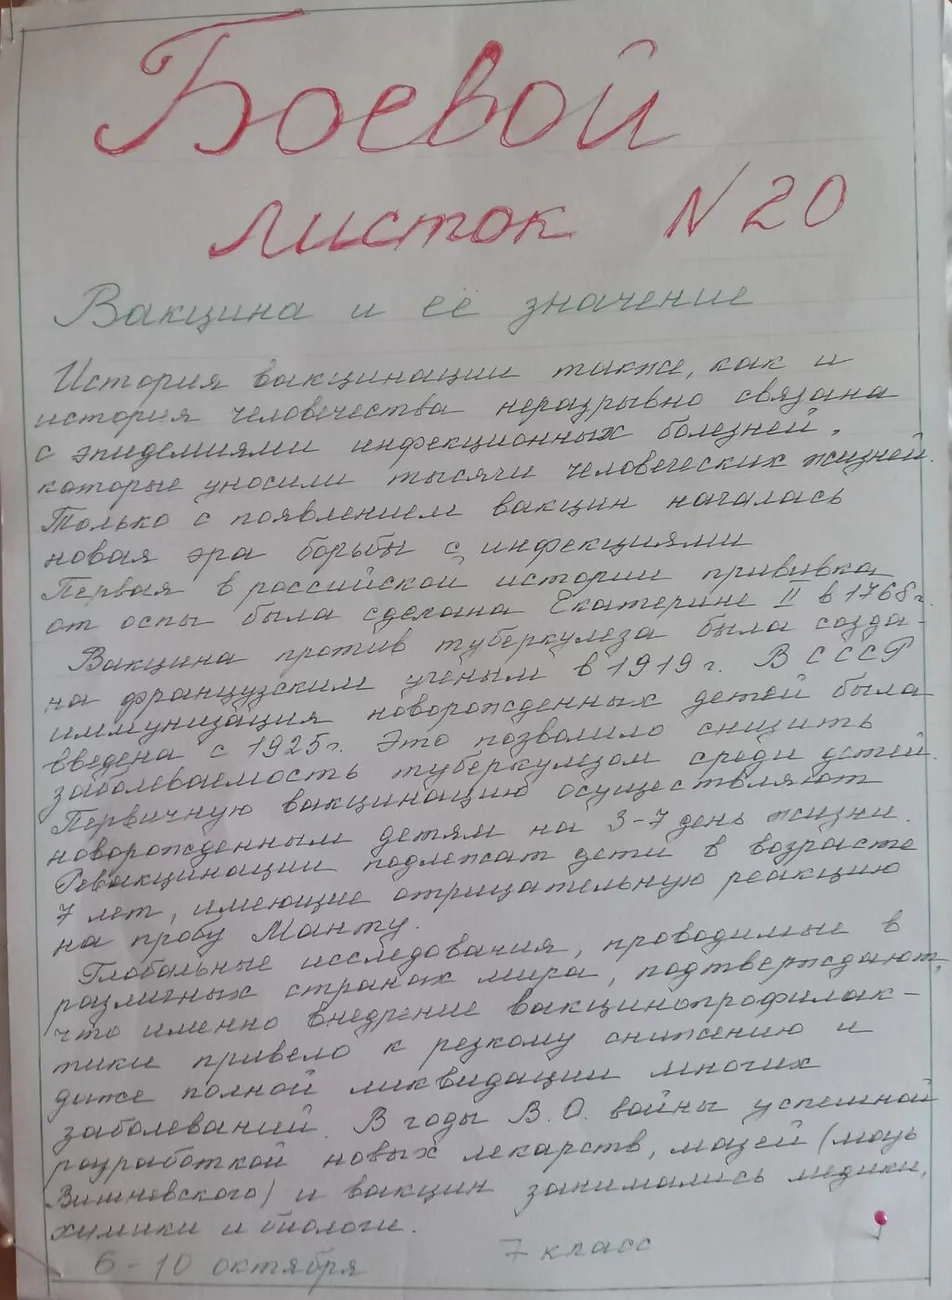 Боевой
листок N 20
Вакцина и её значение
История вакцинации также, как и
история человечества неразрывно связана
с эпидемиями инфекционных болезней,
которые уносили тысячи человеческих жизней.
Только с появлением вакцин началась
новая эра борьбы с инфекциями
Первая в российской истории прививка
от оспы была сделана Екатерине II в 1768г.
Вакцина против туберкулеза была созда-
на французским учёным в 1919 г. В СССР
иммунизация новорожденных детей была
введена с 1925г. Это позволило снизить
заболеваемость туберкулезом среди детей.
Первичную вакцинацию осуществляют
новорожденным детям на 3-7 день жизни.
Ревакцинации подлежат дети в возрасте
7 лет, имеющие отрицательную реакцию
на пробу Манту.
Глобальные исследования, проводимые в
различных странах мира, подтверждают,
что именно внедрение вакцинопрофилак-
тики привело к резкому снижению и
даже полной ликвидации многих
заболеваний. В годы В.О. войны успешной
разработкой новых лекарств, мазей (мазь
Вишневского) и вакцин занимались медики,
химики и биологи.
6-10 октября 7 класс